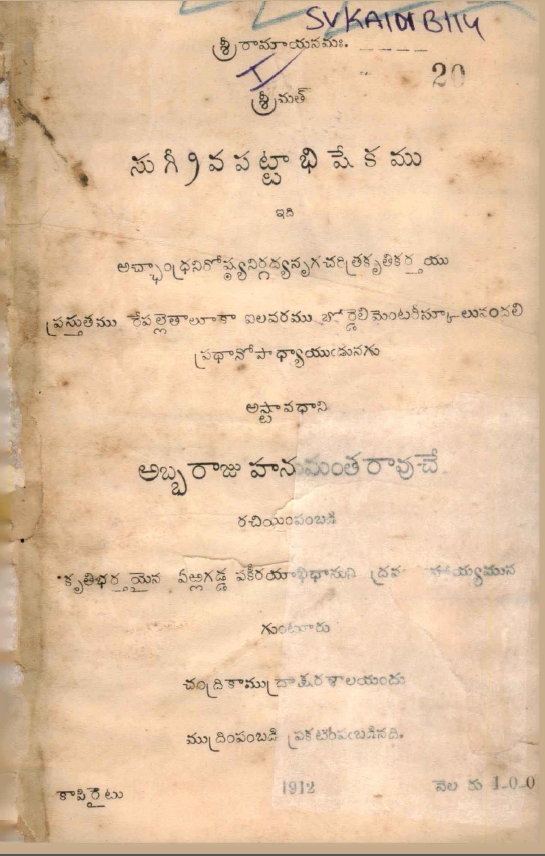 SVKA101B114
శ్రీరామాయనమః.
20
శ్రీమత్
సుగ్రీవపట్టాభిషేకము
ఇది
అచ్ఛాంధ్రనిరోష్ఠ్యనిర్గద్యనృగచరిత్రకృతికర్తయు
ప్రస్తుతము రేపల్లెతాలూకా ఐలవరము బోర్డెలిమెంటరీస్కూలునందలి
ప్రథానోపాధ్యాయుఁడునగు
అష్టావధాని
అబ్బరాజు హనుమంతరావుచే
రచియింపంబడి
కృతిభర్తయైన వీఱ్లగడ్డ పకీరయాభిధానుని
గుంటూరు
చంద్రికాముద్రాక్షరశాలయందు
ముద్రింపంబడి ప్రకటింపఁబడినది.
కాపిరైటు 1912 వెల రు 1-0-0